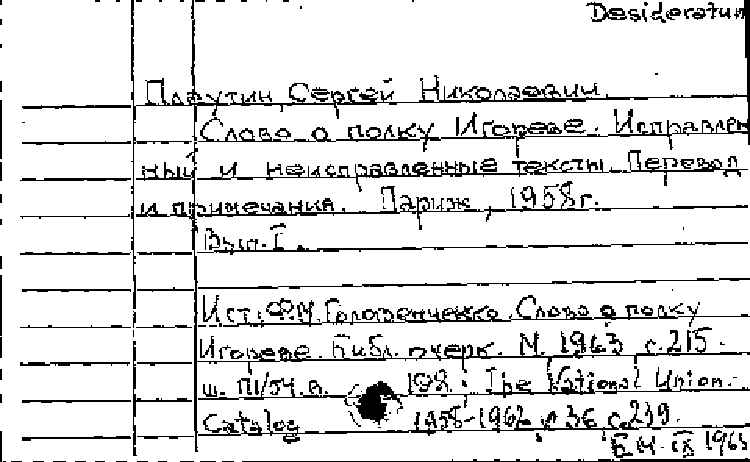 Desideratum
Плаутин, Сергей Николаевич.
Слово о полку Игореве. Исправлен
ный и неисправленные тексты. Перевод
и примечания. Париж, 1958г.
Вып. I.
Ист: Ф.М. Головенченко. Слово о полку
Игореве. Библ. очерк. М. 1963 с. 215.
198. The National Union
Catalog 1958-1962 с. 239.
Е.М. IX 1965